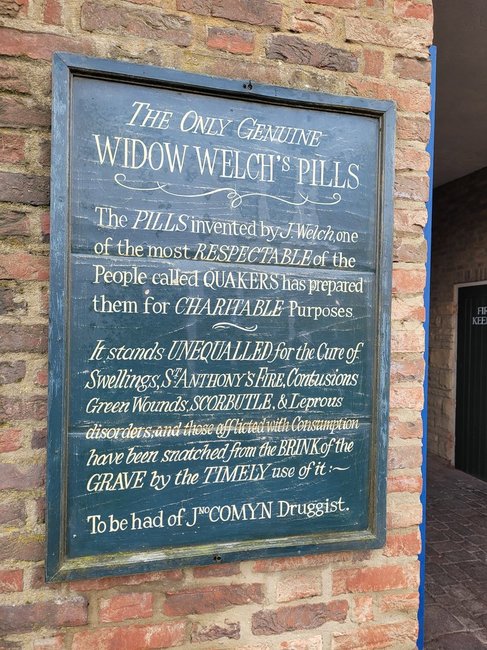 THE ONLY GENUINE
WIDOW WELCH'S PILLS
The PILLS invented by J Welch, one
of the most RESPECTABLE of the
People called QUAKERS has prepared
them for CHARITABLE Purposes.
It stands UNEQUALLED, for the Cure of
Swellings, ST ANTHONY'S FIRE, Contusions
Green Wounds, SCORBUTLE, & Leprous
disorders, and those afflicted with Consumption
have been snatched from the BRINK of the
GRAVE by the TIMELY use of it :~
To be had of JNO COMYN Druggist.